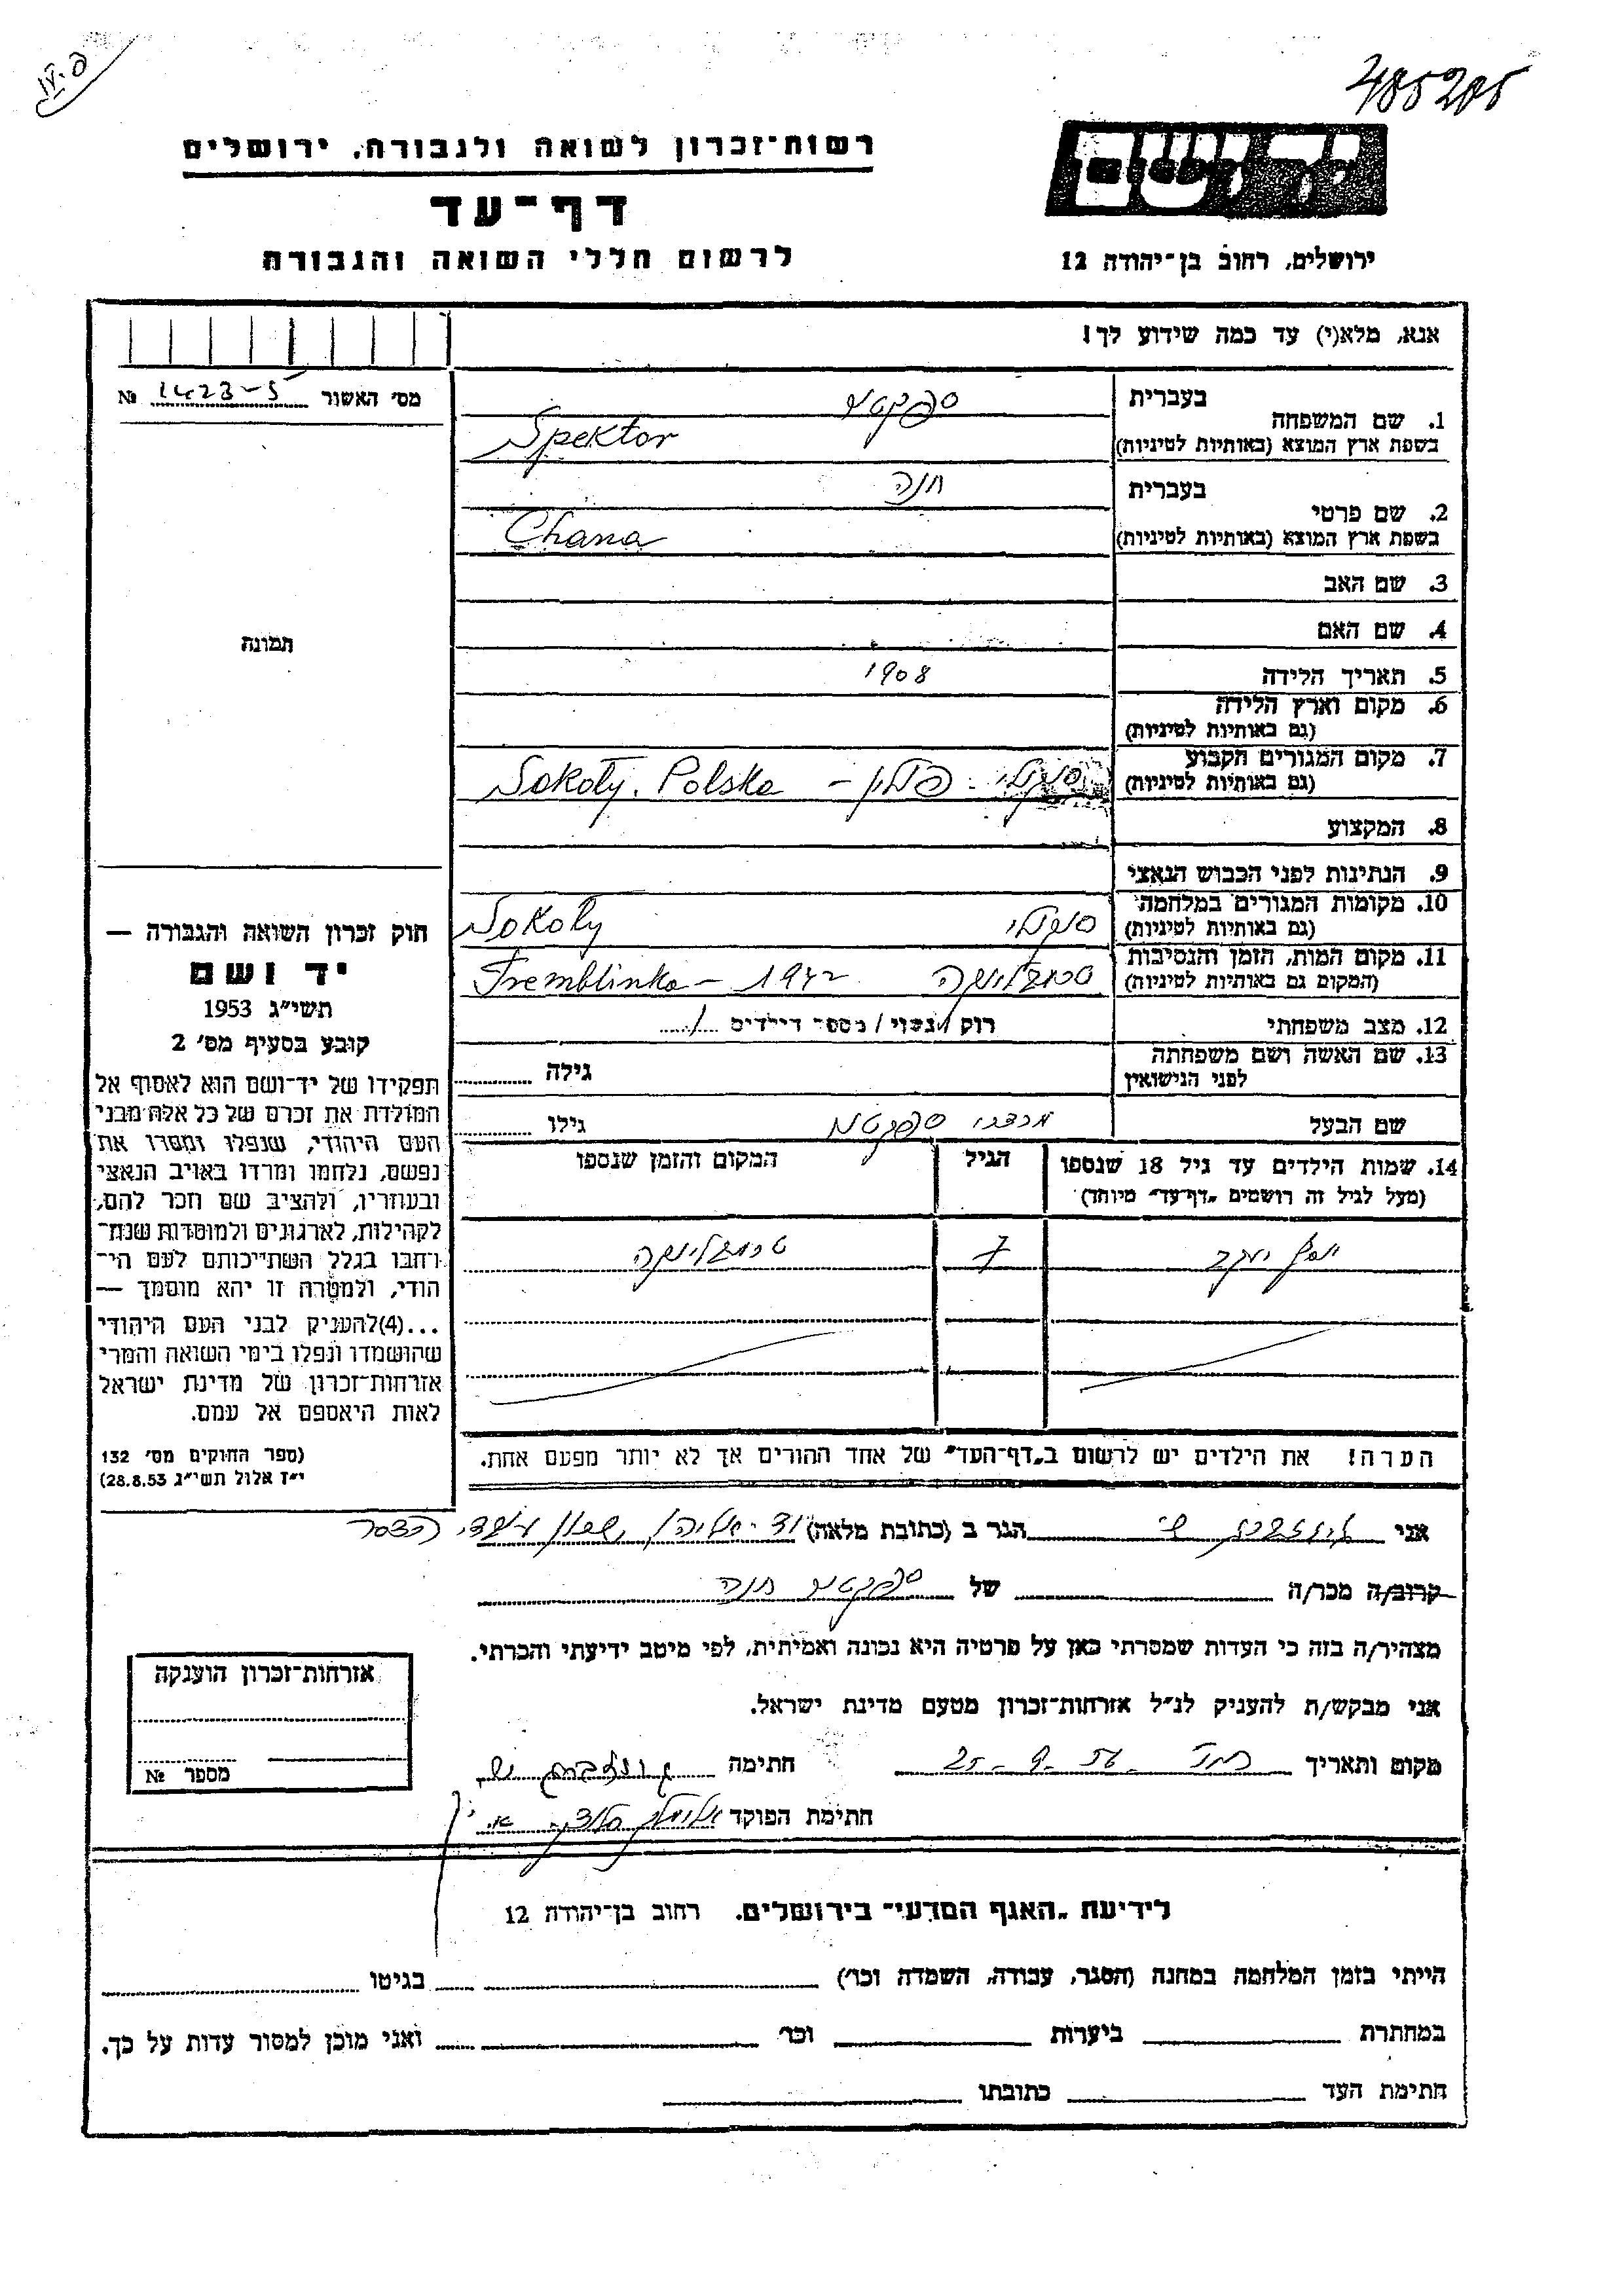 פ.IV
485205
יד ושם
רשות־זכרון לשואה ולגבורה, ירושלים
דף־עד
לרשום חללי השואה והגבורה
ירושלים, רחוב בן־יהודה 12
אנא, מלא(י) עד כמה שידוע לך!
מס׳ האשור 1423-5 №
1. שם המשפחה
בעברית ספקטור
בשפת ארץ המוצא (באותיות לטיניות) Spektor
2. שם פרטי
בעברית חנה
בשפת ארץ המוצא (באותיות לטיניות) Chana
3. שם האב
4. שם האם
תמונה
5. תאריך הלידה 1908
6. מקום וארץ הלידה
(גם באותיות לטיניות)
7. מקום המגורים הקבוע
(גם באותיות לטיניות) סוקולי - פולין - Sokoły. Polska
8. המקצוע
9. הנתינות לפני הכבוש הנאצי
10. מקומות המגורים במלחמה
(גם באותיות לטיניות) סוקולי Sokoły
11. מקום המות, הזמן והנסיבות
(המקום גם באותיות לטיניות) טרמבלינקה Tremblinka - 1942
12. מצב משפחתי רוק / נשוי / מספר הילדים 1
13. שם האשה ושם משפחתה
לפני הנישואין גילה
שם הבעל ספקטור גילו
14. שמות הילדים עד גיל 18 שנספו
(מעל לגיל זה רושמים „דף־עד״ מיוחד)
הגיל
המקום והזמן שנספו
יוסף יעקב 7 טרמבלינקה
הערה! את הילדים יש לרשום ב„דף־העד״ של אחד ההורים אך לא יותר מפעם אחת.
חוק זכרון השואה והגבורה —
יד ושם
תשי״ג 1953
קובע בסעיף מס׳ 2
תפקידו של יד־ושם הוא לאסוף אל
המולדת את זכרם של כל אלה מבני
העם היהודי, שנפלו ומסרו את
נפשם, נלחמו ומרדו באויב הנאצי
ובעוזריו, ולהציב שם וזכר להם,
לקהילות, לארגונים ולמוסדות שנח־
רחבו בגלל השתייכותם לעם הי־
הודי, ולמטרה זו יהא מוסמך —
...(4)להעניק לבני העם היהודי
שהושמדו ונפלו בימי השואה והמרי
אזרחות־זכרון של מדינת ישראל
לאות היאספם אל עמם.
(ספר החוקים מס׳ 132
י״ז אלול תשי״ג 28.8.53)
אני הגר ב (כתובת מלאה)
קרוב/ה מכר/ה של ספקטור חנה
מצהיר/ה בזה כי העדות שמסרתי כאן על פרטיה היא נכונה ואמיתית, לפי מיטב ידיעתי והכרתי.
אני מבקש/ת להעניק לנ״ל אזרחות־זכרון מטעם מדינת ישראל.
מקום ותאריך 25-9-56 חתימה
חתימת הפוקד
אזרחות־זכרון הוענקה
מספר №
לידיעת „האגף המדעי״ בירושלים. רחוב בן־יהודה 12
הייתי בזמן המלחמה במחנה (הסגר, עבודה, השמדה וכו׳) בגיטו
במחתרת ביערות וכו׳ ואני מוכן למסור עדות על כך.
חתימת העד כתובתו